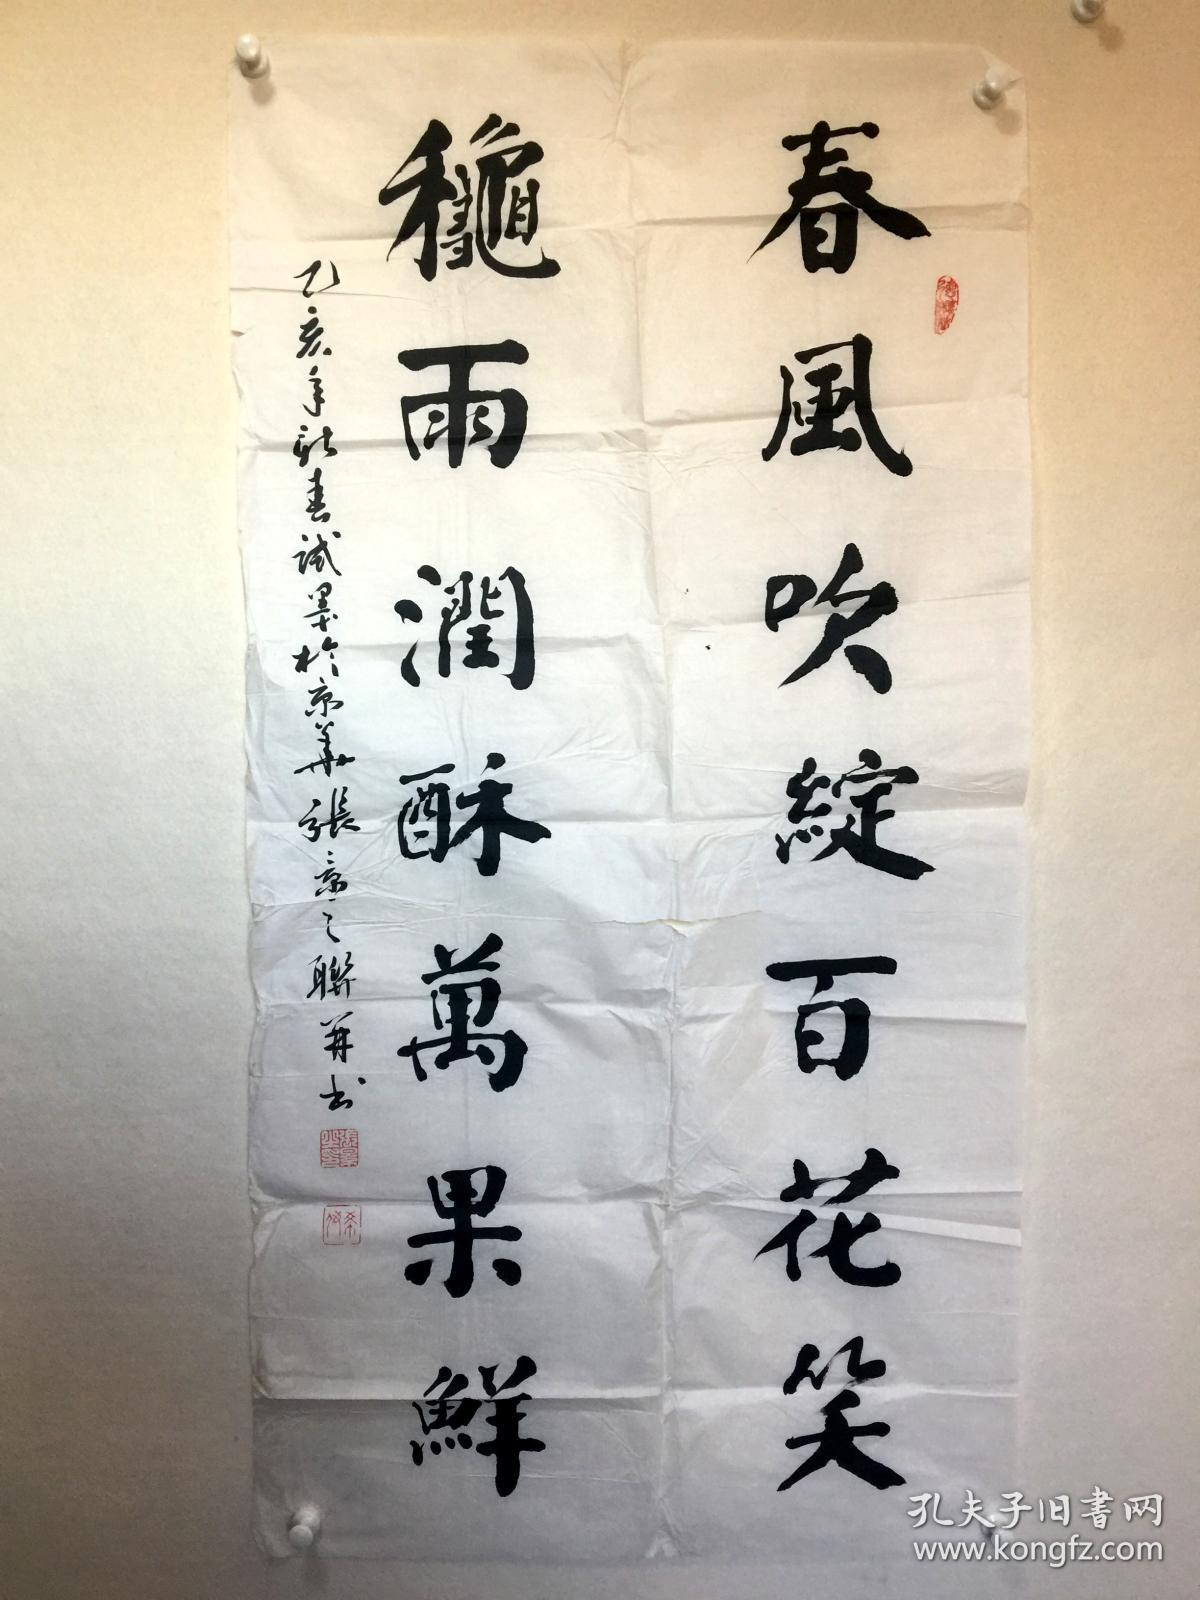 春風吹綻百花笑
龝雨潤酥萬果鮮
乙亥年新春試墨於京華張景之聯并书
孔夫子旧書网
www.kongfz.com